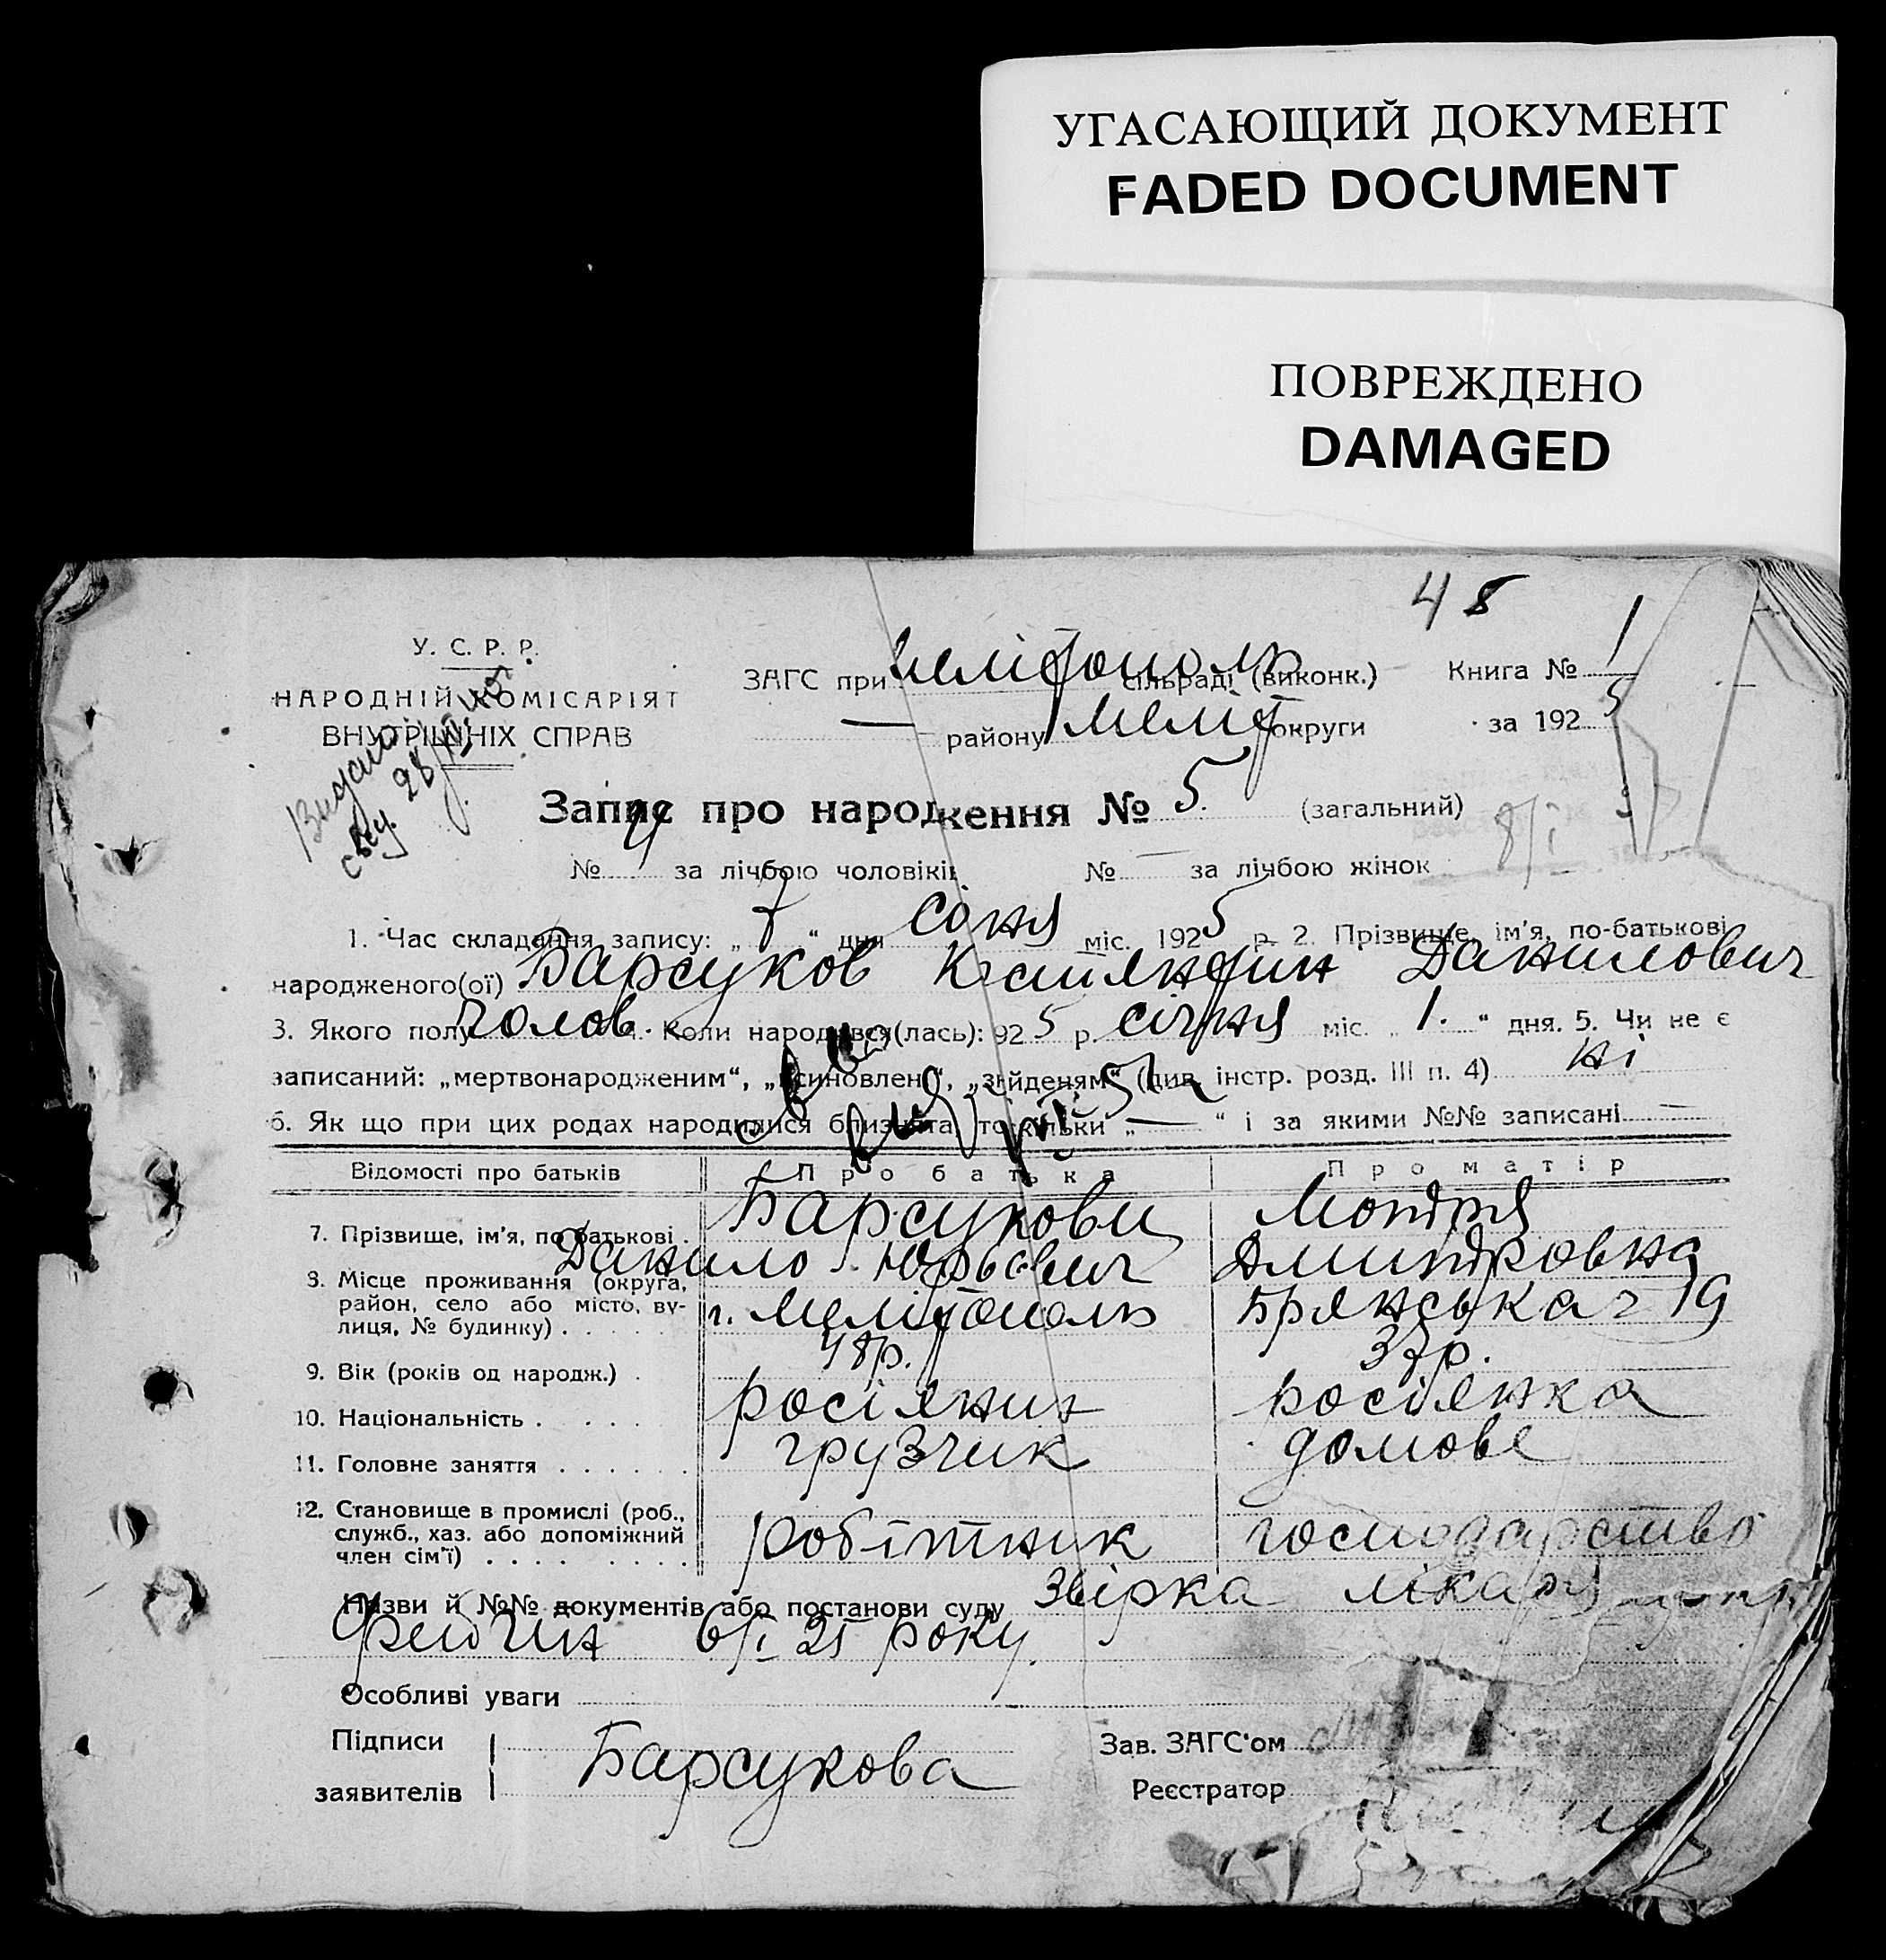 УГАСАЮЩИЙ ДОКУМЕНТ
FADED DOCUMENT
ПОВРЕЖДЕНО
DAMAGED
48
У. С. Р. Р.
НАРОДНІЙ КОМІСАРІЯТ
ВНУТРІШНІХ СПРАВ
ЗАГС при Мелітополь сільраді (виконк.) Книга № 1
— району Меліт округи за 1925
Запис про народження № 5. (загальний) 8/I
№ 4 за лічбою чоловіків № — за лічбою жінок
1. Час складання запису: „ 7 “ дня січня міс. 1925 р. 2. Прізвище, ім'я, по-батькові
народженого(ої) Барсуков Данилович
3. Якого полу чолов. 4. Коли народився(лась): 925 р. січня міс. „ 1. “ дня. 5. Чи не є
записаний: „мертвонародженим“, „всиновлен“, „знайденям“ (див. інстр. розд. III п. 4) ні
6. Як що при цих родах народилися близнята, то скільки „ — “ і за якими №№ записані —
Відомості про батьків Про батька Про матір
7. Прізвище, ім'я, по батькові . Барсукови
Данило Юрьевич Дмитровна
8. Місце проживання (округа,
район, село або місто, ву-
лиця, № будинку) . . . . . г. Мелітополь Брянська 19
9. Вік (років од народж.) . 48р. 37р.
10. Національність . . . . росіянин росіянка
11. Головне заняття . . . . . . грузчик домове
12. Становище в промислі (роб.,
служб., хаз. або допоміжний
член сім'ї) . . . . . . . . робітник господарство
Назви й №№ документів або постанови суду Звірка лікаря
6/I 25 року.
Особливі уваги
Підписи
заявителів Барсукова
Зав. ЗАГС'ом
Реєстратор